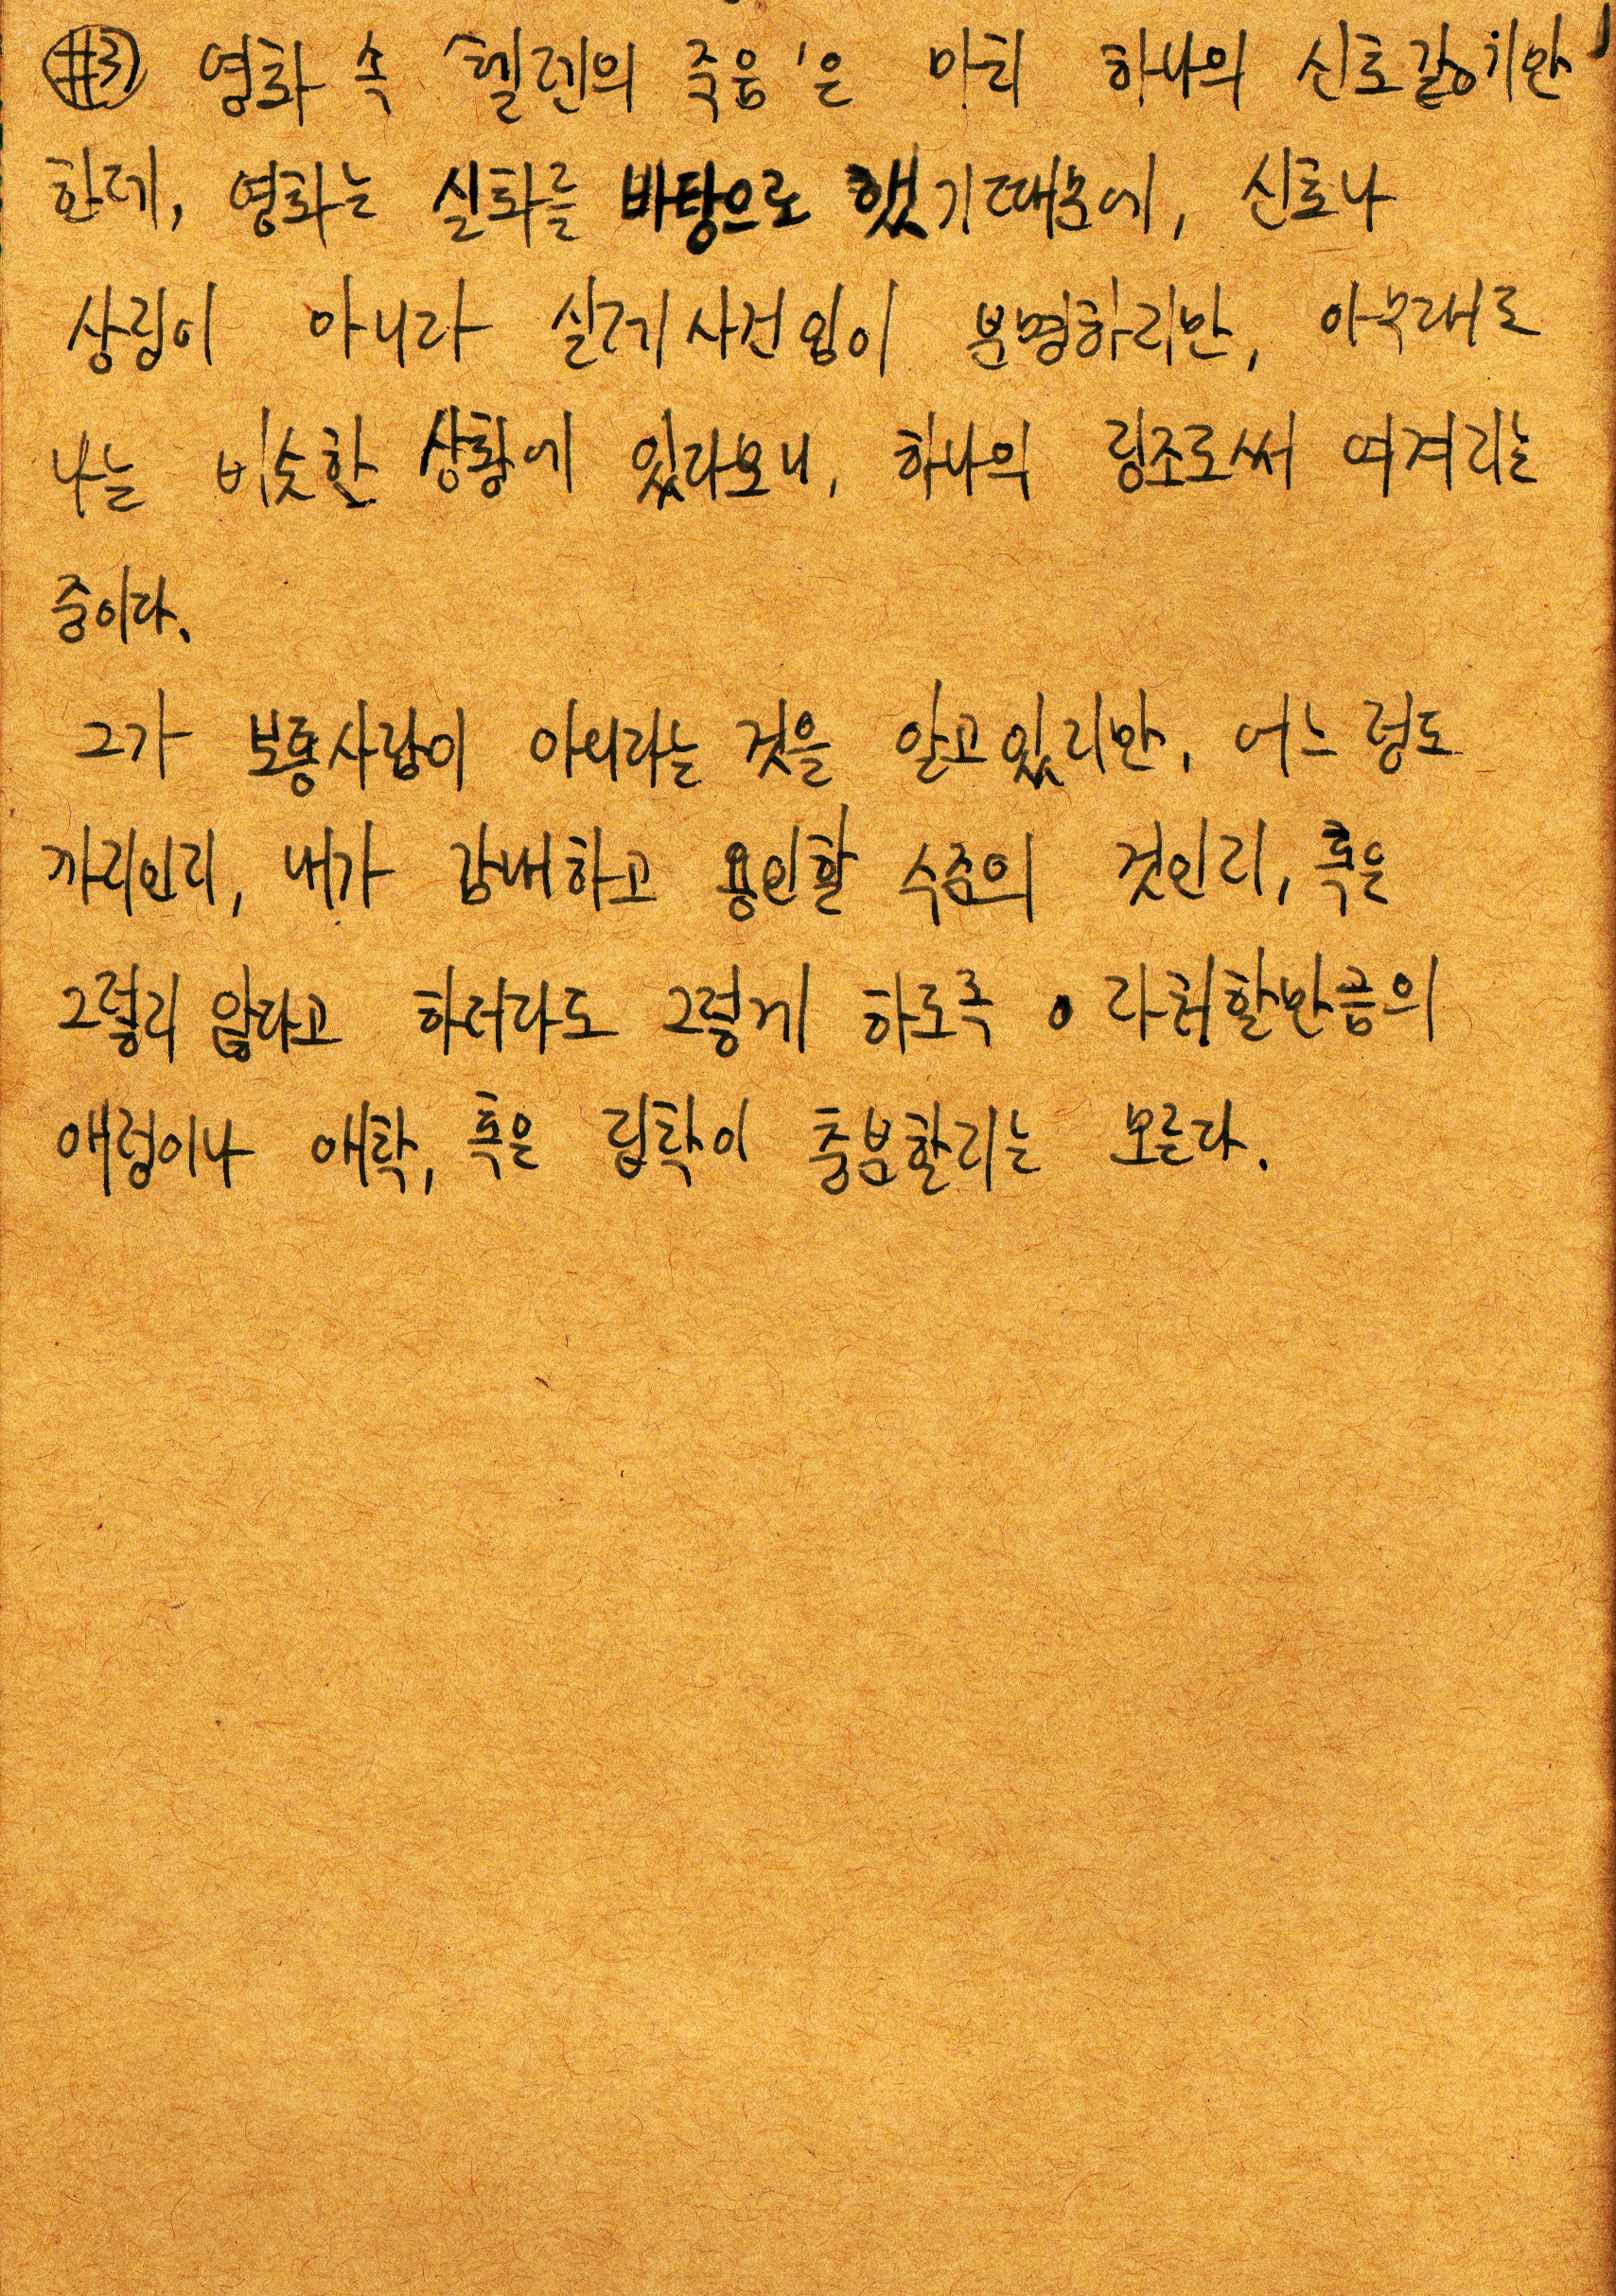 #3 영화 속 '헬렌의 죽음'은 마치 하나의 신호같기만
한데, 영화는 실화를 바탕으로 했기때문에, 신호나
상징이 아니라 실제사건임이 분명하지만, 아무래도
나는 비슷한 상황에 있다보니, 하나의 징조로써 여겨지는
중이다.
그가 보통사람이 아니라는 것을 알고있지만, 어느정도
까지인지, 내가 감내하고 용인할 수준의 것인지, 혹은
그렇지 않다고 하더라도 그렇게 하도록 자처할만큼의
애정이나 애착, 혹은 집착이 충분할지는 모른다.